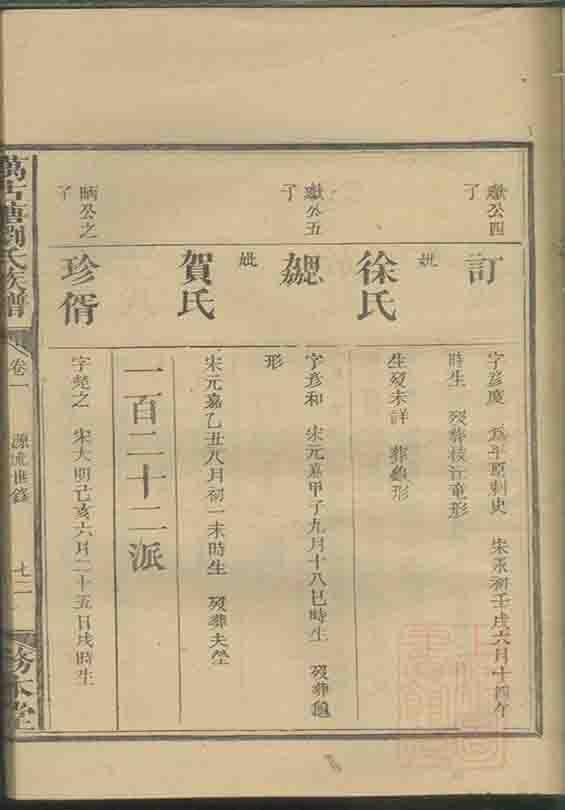 繼公四
了
訂
字彦度　為平原刺史　宋永初壬戌六月十四午
時生　歿葬枝江童形
妣
徐氏
生歿未詳　葬龜形
繼公五
了
勰
字彦和　宋元嘉甲子九月十八巳時生　歿葬龜
形
妣
賀氏
宋元嘉乙丑八月初一未時生　歿葬夫塋
一百二十二派
昞公之
了
珍偦
字楚之　宋大明己亥六月二十五日戌時生
萬古塘劉氏族譜
卷一
源流世錄
七二
務本堂